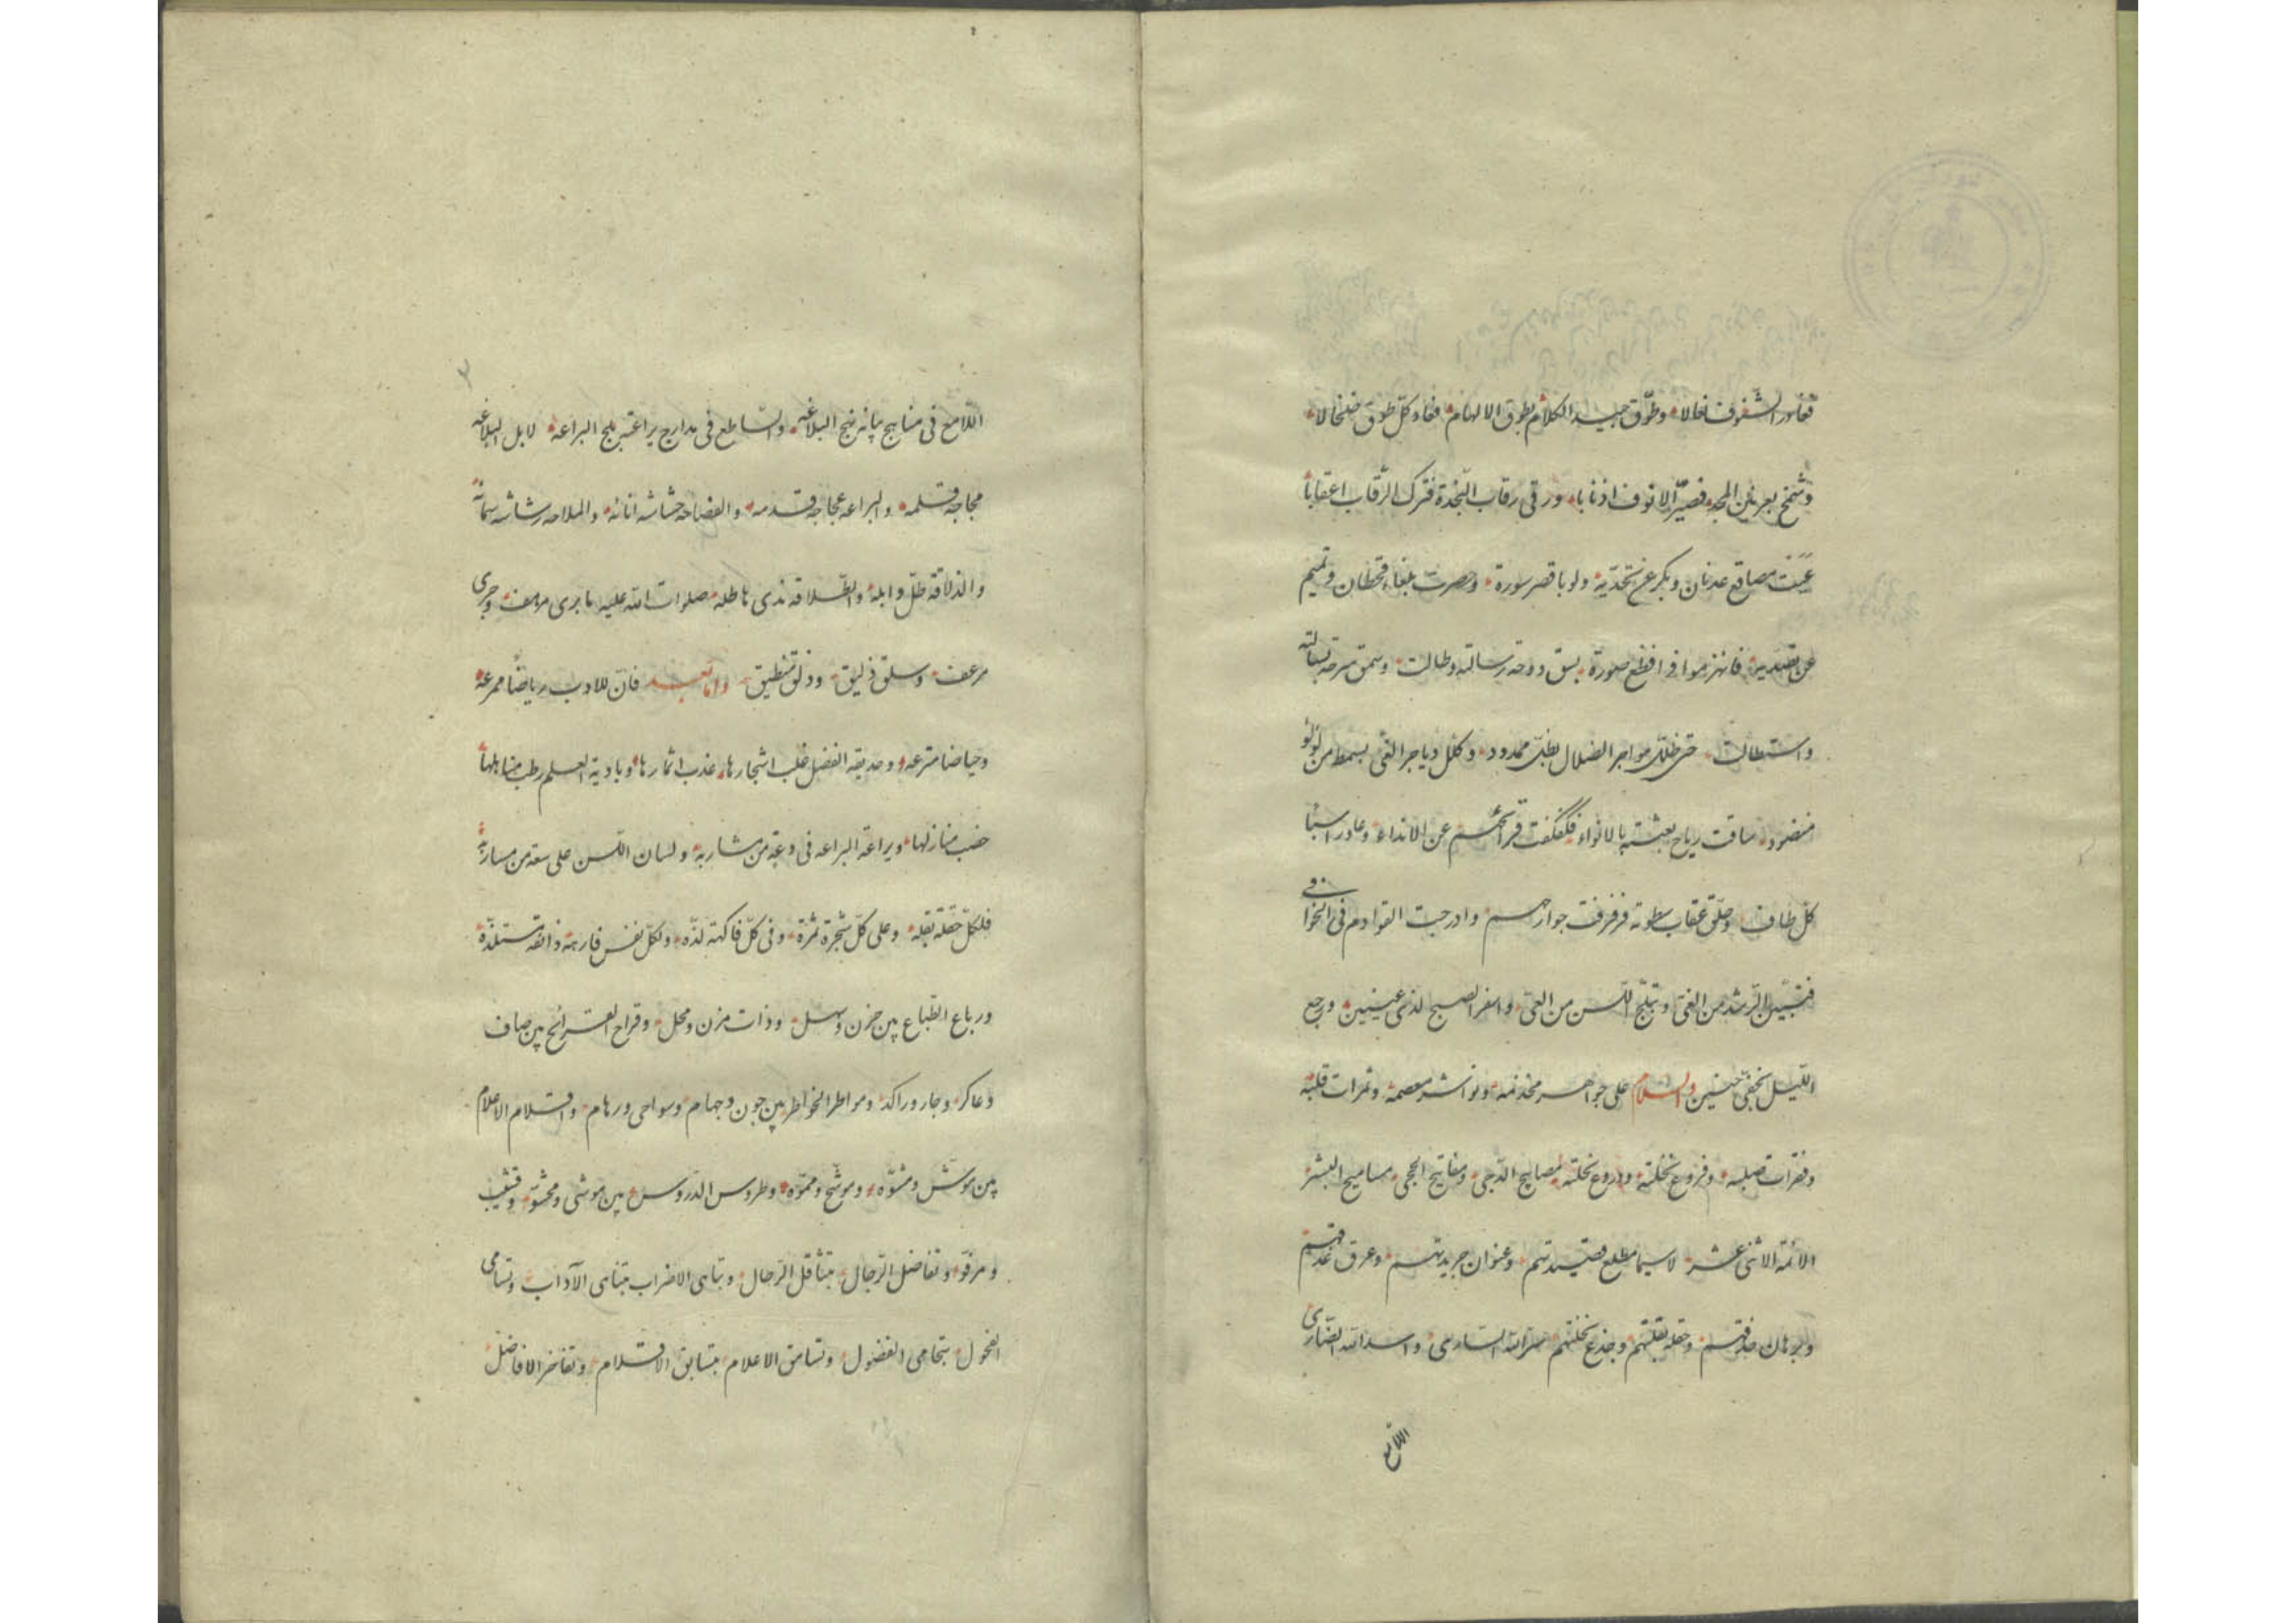 فغادر الشفوف خالا وطوّق جيد الكلام بطوق الالهام فعاد كلّ طوق خلخالا
وشمخ بعرنين المجد فصيّر الانوف اذنابا ورقى رقاب النجدة فترك الرّقاب اعقابا
عيّت مصاقع عدنان وبكر عن تحدّيه ولو باقصر سورة وحصرت بلغاء قحطان وتميم
عن تصديه فانهزموا فى افظع صورة بسق دوحة رسالته وطالت وسمق سرحة بسالته
واستطالت حتى ظلّل هواجر الضلال بظلّ ممدود وكلّل دياجر الغى بسمط من لؤلؤ
منضود ساقت رياح بعثته بالانواء فكفكفت قرائحهم عن الانداء وغادر اسبا
كل طاف وحلّق عقاب سطوته فزفزفت جوارحهم وادرجت القوادم فى الخوافى
فتبيّن الرّشد من الغىّ وتبلّج اللسن من العىّ واسفر الصبح لذى عينين ورجع
اللّيل بخفّى حنين والسلام على جواهر مخذمه ونواشر معصمه وثمرات قلبه
وفقرات صلبه وفروع نخلته ودروع نحلته مصابيح الدّجى ومفاتيح الحجى مساميح البشر
الائمة الاثنى عشر لا سيما مطلع قصيدتهم وعنوان جريدتهم وعرق عذقهم
وبرهان صدقهم وحقله بقلتهم وجذع نخلتهم سرّ الله السّارى واسد الله الضّارى
اللامع
٣
اللّامع فى مناهج بيانه نهج البلاغه والسّاطع فى مدارج براعته بلج البراعه لا بل البلاغه
مجاجة قلمه والبراعه عجاجة قدمه والفصاحه حشاشه اناثه والملاحه رشاشه سمائه
والذلاقة طلّ وابله والطّلاقه ندى هاطله صلوات الله عليه ما برى مرهف وجرى
مرعف وسلق ذليق وذلق منطيق وامّا بعد فانّ للادب رياضا ممرعه
وحياضا مترعه وحديقه الفضل غلب اشجارها عذب اثمارها وبادية العلم رطب مناهلها
خصب منازلها ويراعة البراعه فى دعة من مشاربه ولسان اللسن على سعة من مساربه
فلكلّ حقلة بقله وعلى كلّ شجرة ثمرة وفى كلّ فاكهة لذّه ولكلّ نفس فارهة ذائقة مستلذّة
ورباع الطّباع بين حزن وسهل وذات مزن ومحل وقراح القرائح بين صاف
وعاكر وجار وراكد ومواطر الخواطر بين جون وجهام وسواحى ورهام واقلام الاعلام
بين موشّ ومشوّه وموشّح ومموّه وطروس الدّروس بين موشى ومحشوّ وقشيب
ومرفوّ وتفاضل الرّجال بتثاقل الرّحال وتباهى الاضراب بتناهى الآداب وتسامى
الفحول بتحامى الفضول وتسامق الاعلام بتسابق الاقلام وتفاخر الافاضل